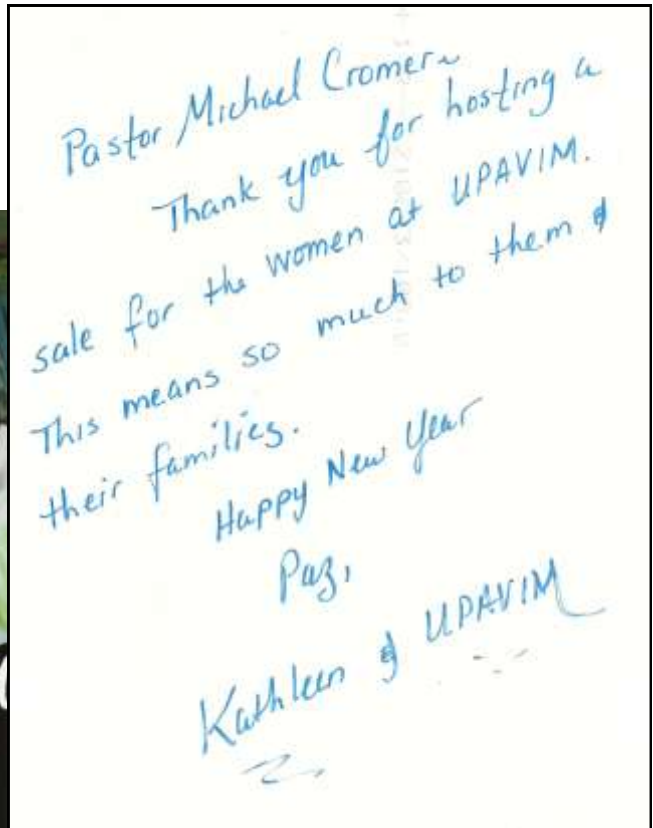 Pastor Michael Cromer~
Thank you for hosting a
sale for the women at UPAVIM.
This means so much to them &
their families.
Happy New Year
Paz,
Kathleen & UPAVIM